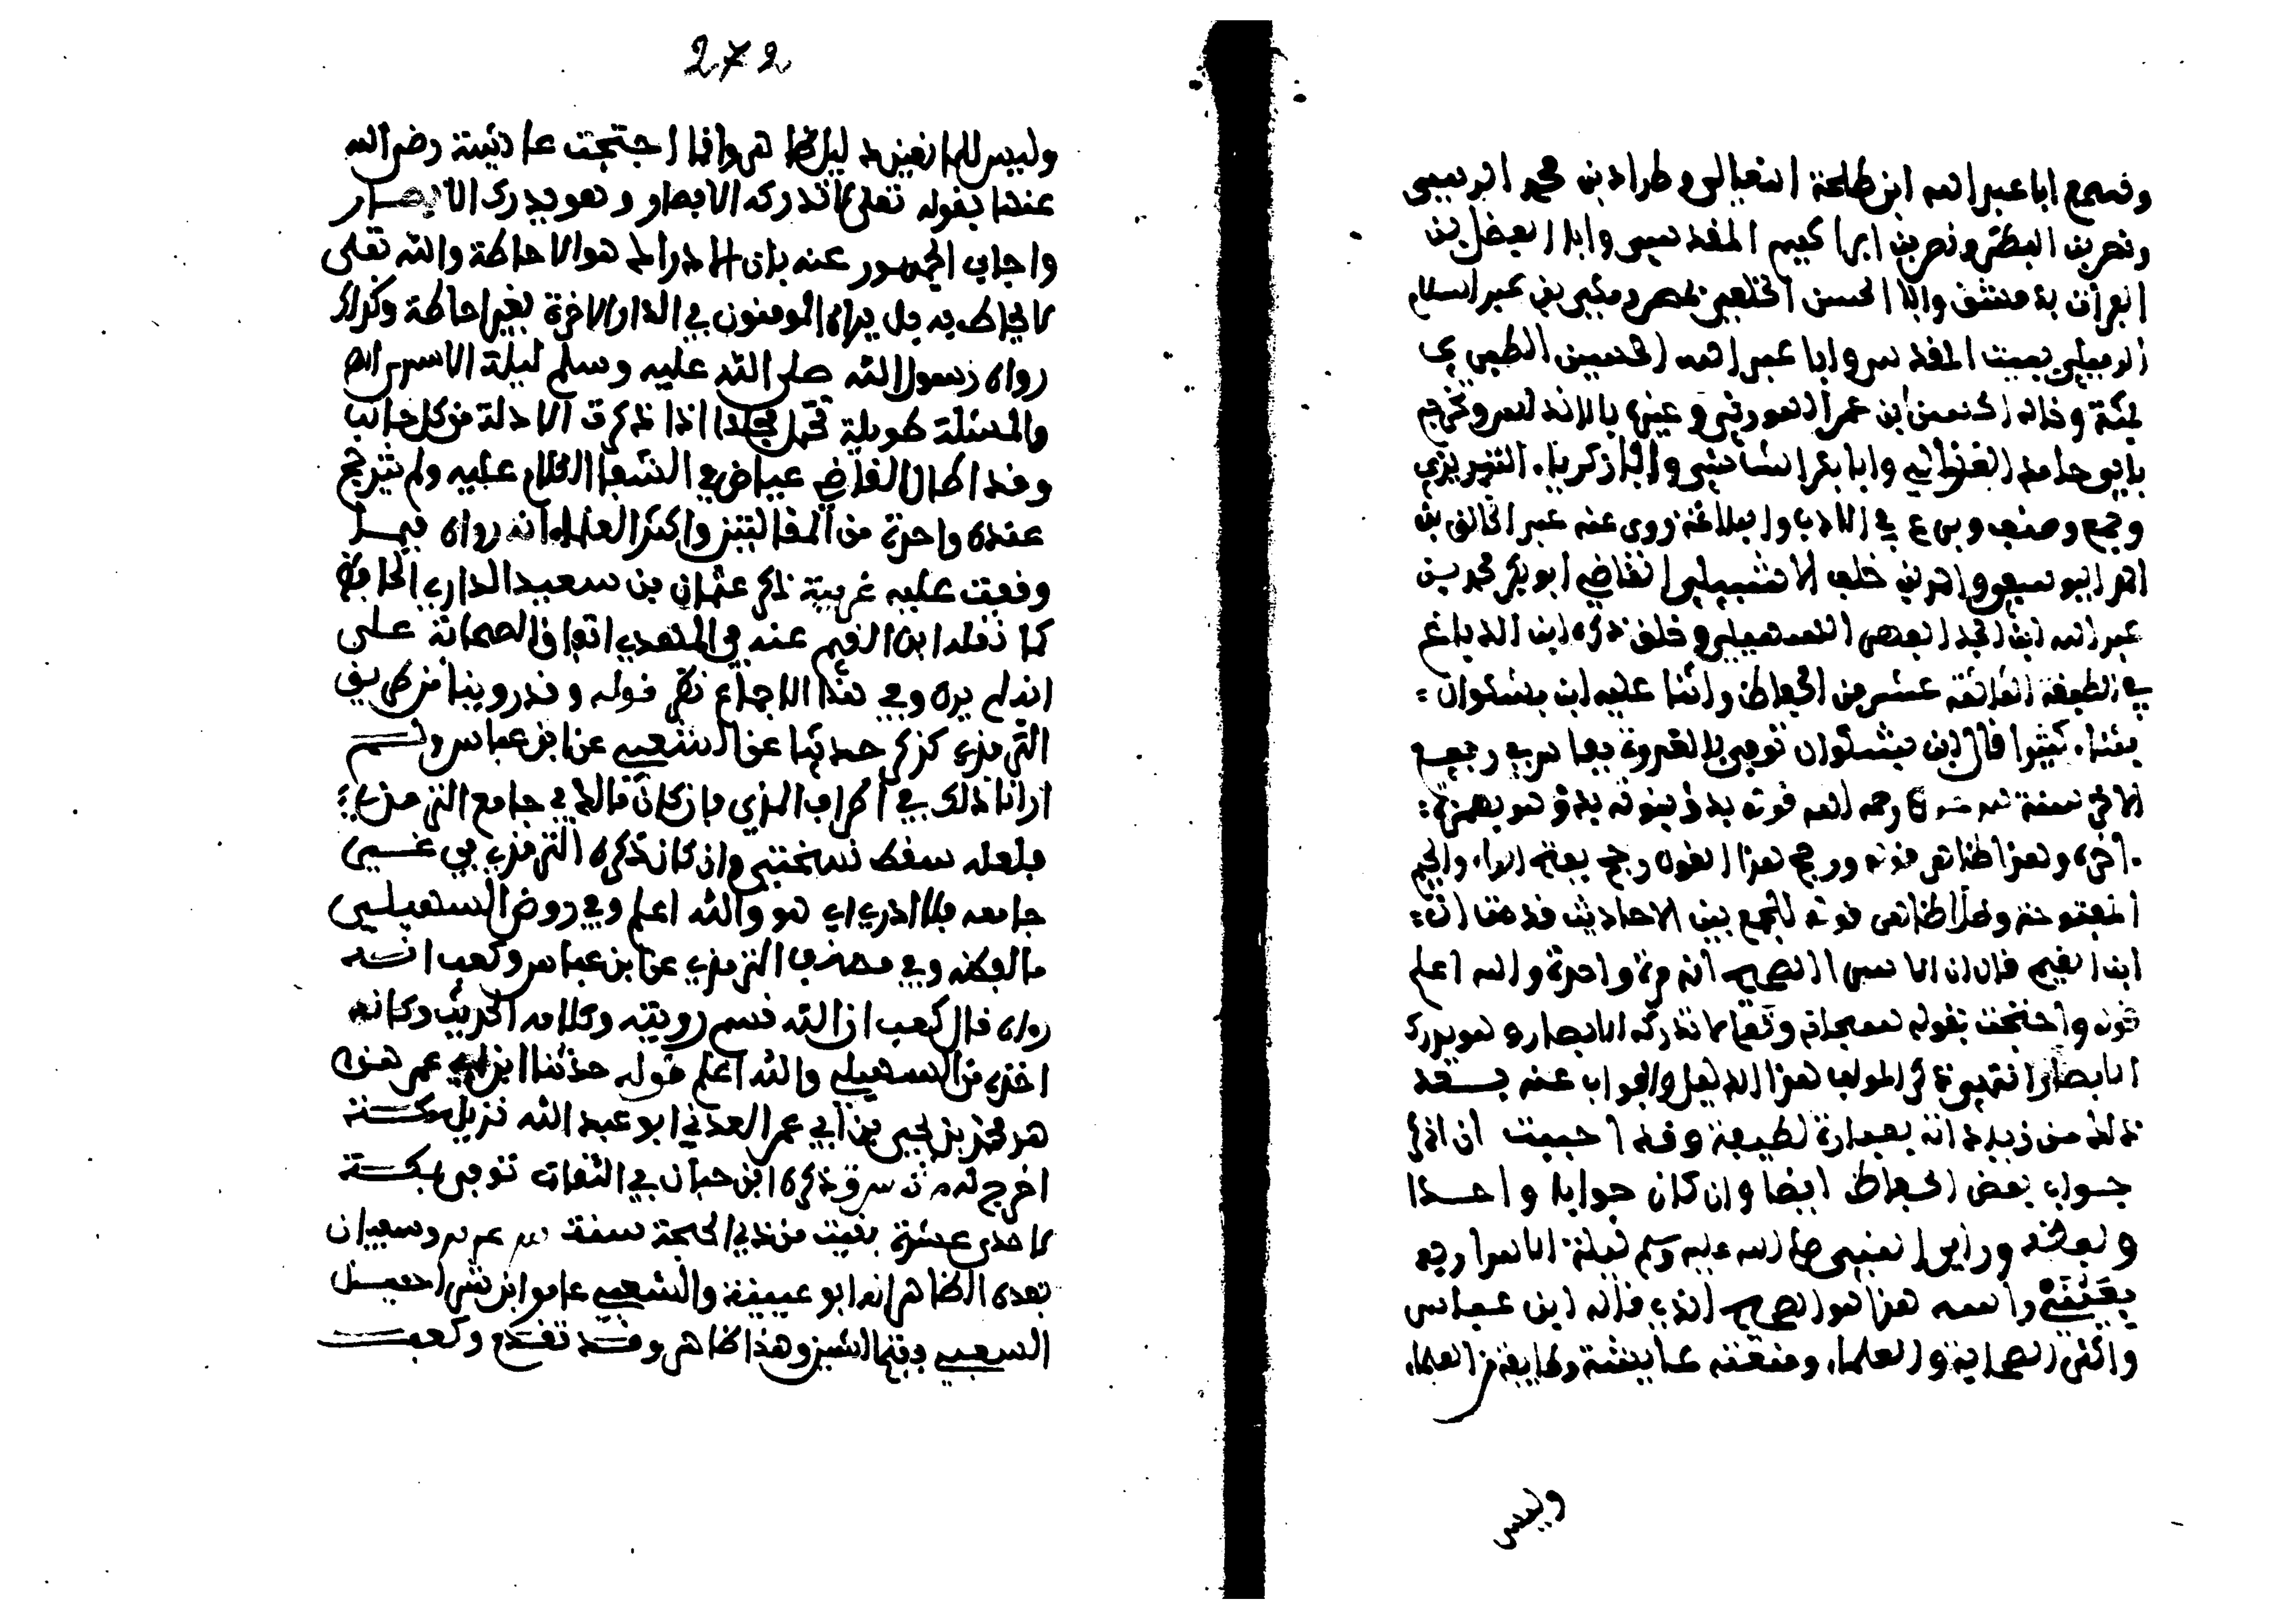 وسمع ابا عبد الله ابن طلحة النعالي وطراد بن محمد الزينبي
ونصر بن البطر ونصر بن ابراهيم المقدسي وابا الفضل بن
الفرات بدمشق وابا الحسن الخلعي بمصر ومكي بن عبد السلام
الرميلي ببيت المقدس وابا عبد الله الحسين الطبري
بمكة وخاله الحسن ابن عمر الهوزني وغيره بالاندلس وتخرج
بابي حامد الغزالي وابا بكر الشاشي وابا زكرياء التبريزي
وجمع وصنف وبرع في الادب والبلاغة روى عنه عبد الخالق بن
احمد اليوسفي واحمد بن خلف الاشبيلي القاضي ابو بكر محمد بن
عبد الله ابن الجد الفهري السهيلي وخلق ذكره ابن الدباغ
في الطبقة الثالثة عشر من الحفاظ واثنا عليه ابن بشكوال
بثناء كثيرا قال ابن بشكوال توفي بالعدوة بفاس في ربيع
الاخر سنة رحمه الله قوله بدؤ ينوته بدؤ هو بهمزة
اخره وهذا ظاهر قوله ورجح هذا القول رجح بفتح الراء والجيم
المفتوحة وهذا ظاهر قوله للجمع بين الاحاديث قدمنا ان
ابن القيم قال ان الاسرا الصحيح انه مرة واحدة والله اعلم
قوله واحتجت بقوله سبحانه وتعا لا تدركه الابصار وهو يدرك
الابصار انتهى ذكر المولف هذا الدليل والجواب عنه بعد
ذلك من زياداته بعبارة لطيفة وقد احببت ان اذكر
جواب بعض الحفاظ ايضا وان كان جوابا واحدا
ولفظه وراى النبي صلى الله عليه وسلم ليلة الاسرا ربه
بعينيه والله هذا هو الصحيح الذي قاله ابن عباس
واكثر الصحابة والعلماء ومنعته عايشة وطايفة من العلماء
وليس
272
وليس للمانعين دليل ظاهر وانما احتجت عائشة رضي الله
عنها بقوله تعلى لا تدركه الابصار وهو يدرك الابصار
واجاب الجمهور عنه بان الادراك هو الاحاطة والله تعلى
لا يحاط به بل يراه المومنون في الدار الاخرة بغير احاطة وكذلك
رواه رسول الله صلى الله عليه وسلم ليلة الاسرى انتهى
والمسئلة طويلة تحتمل مجلدا اذا ذكرت الادلة من كل جانب
وقد اطال القاضي عياض في الشفا الكلام عليه ولم يترجح
عنده واحدة من المقالتين واكثر العلماء انه رواه فيما
وقفت عليه غريبة ذكر عثمان بن سعيد الداري الحافظ
كما نقله ابن القيم عنه في الهدي اتفاق الصحابة على
انه لم يره وفي هذا الاجماع نظر قوله وقد روينا من طريق
الترمذي كذكر حديثا عن الشعبي عن ابن عباس ولم
ار انا ذلك في اطراف المزي فان كان قاله في جامع الترمذي
فلعله سقط نسختي وان كان ذكره الترمذي في غير
جامعه فلا ادري اي هو والله اعلم وفي روض السهيلي
ما لفظه وفي مصنف الترمذي عن ابن عباس وكعب انه
رواه قال كعب ان الله قسم رويته وكلامه الحديث وكانه
اخذه من السهيلي والله اعلم قوله حدثنا ابن ابي عمر هذا
هو محمد بن يحيى بن ابي عمر العدني ابو عبد الله نزيل مكة
اخرج له م ت س ق ذكره ابن حبان في الثقات توفي بمكة
لاحدى عشرة بقيت من ذي الحجة سنة وسفيان
بعده الظاهر انه ابو عيينة والشعبي عامر ابن شراحيل
الشعبي بفتح الشين وهذا ظاهر وقد تقدم وكعب